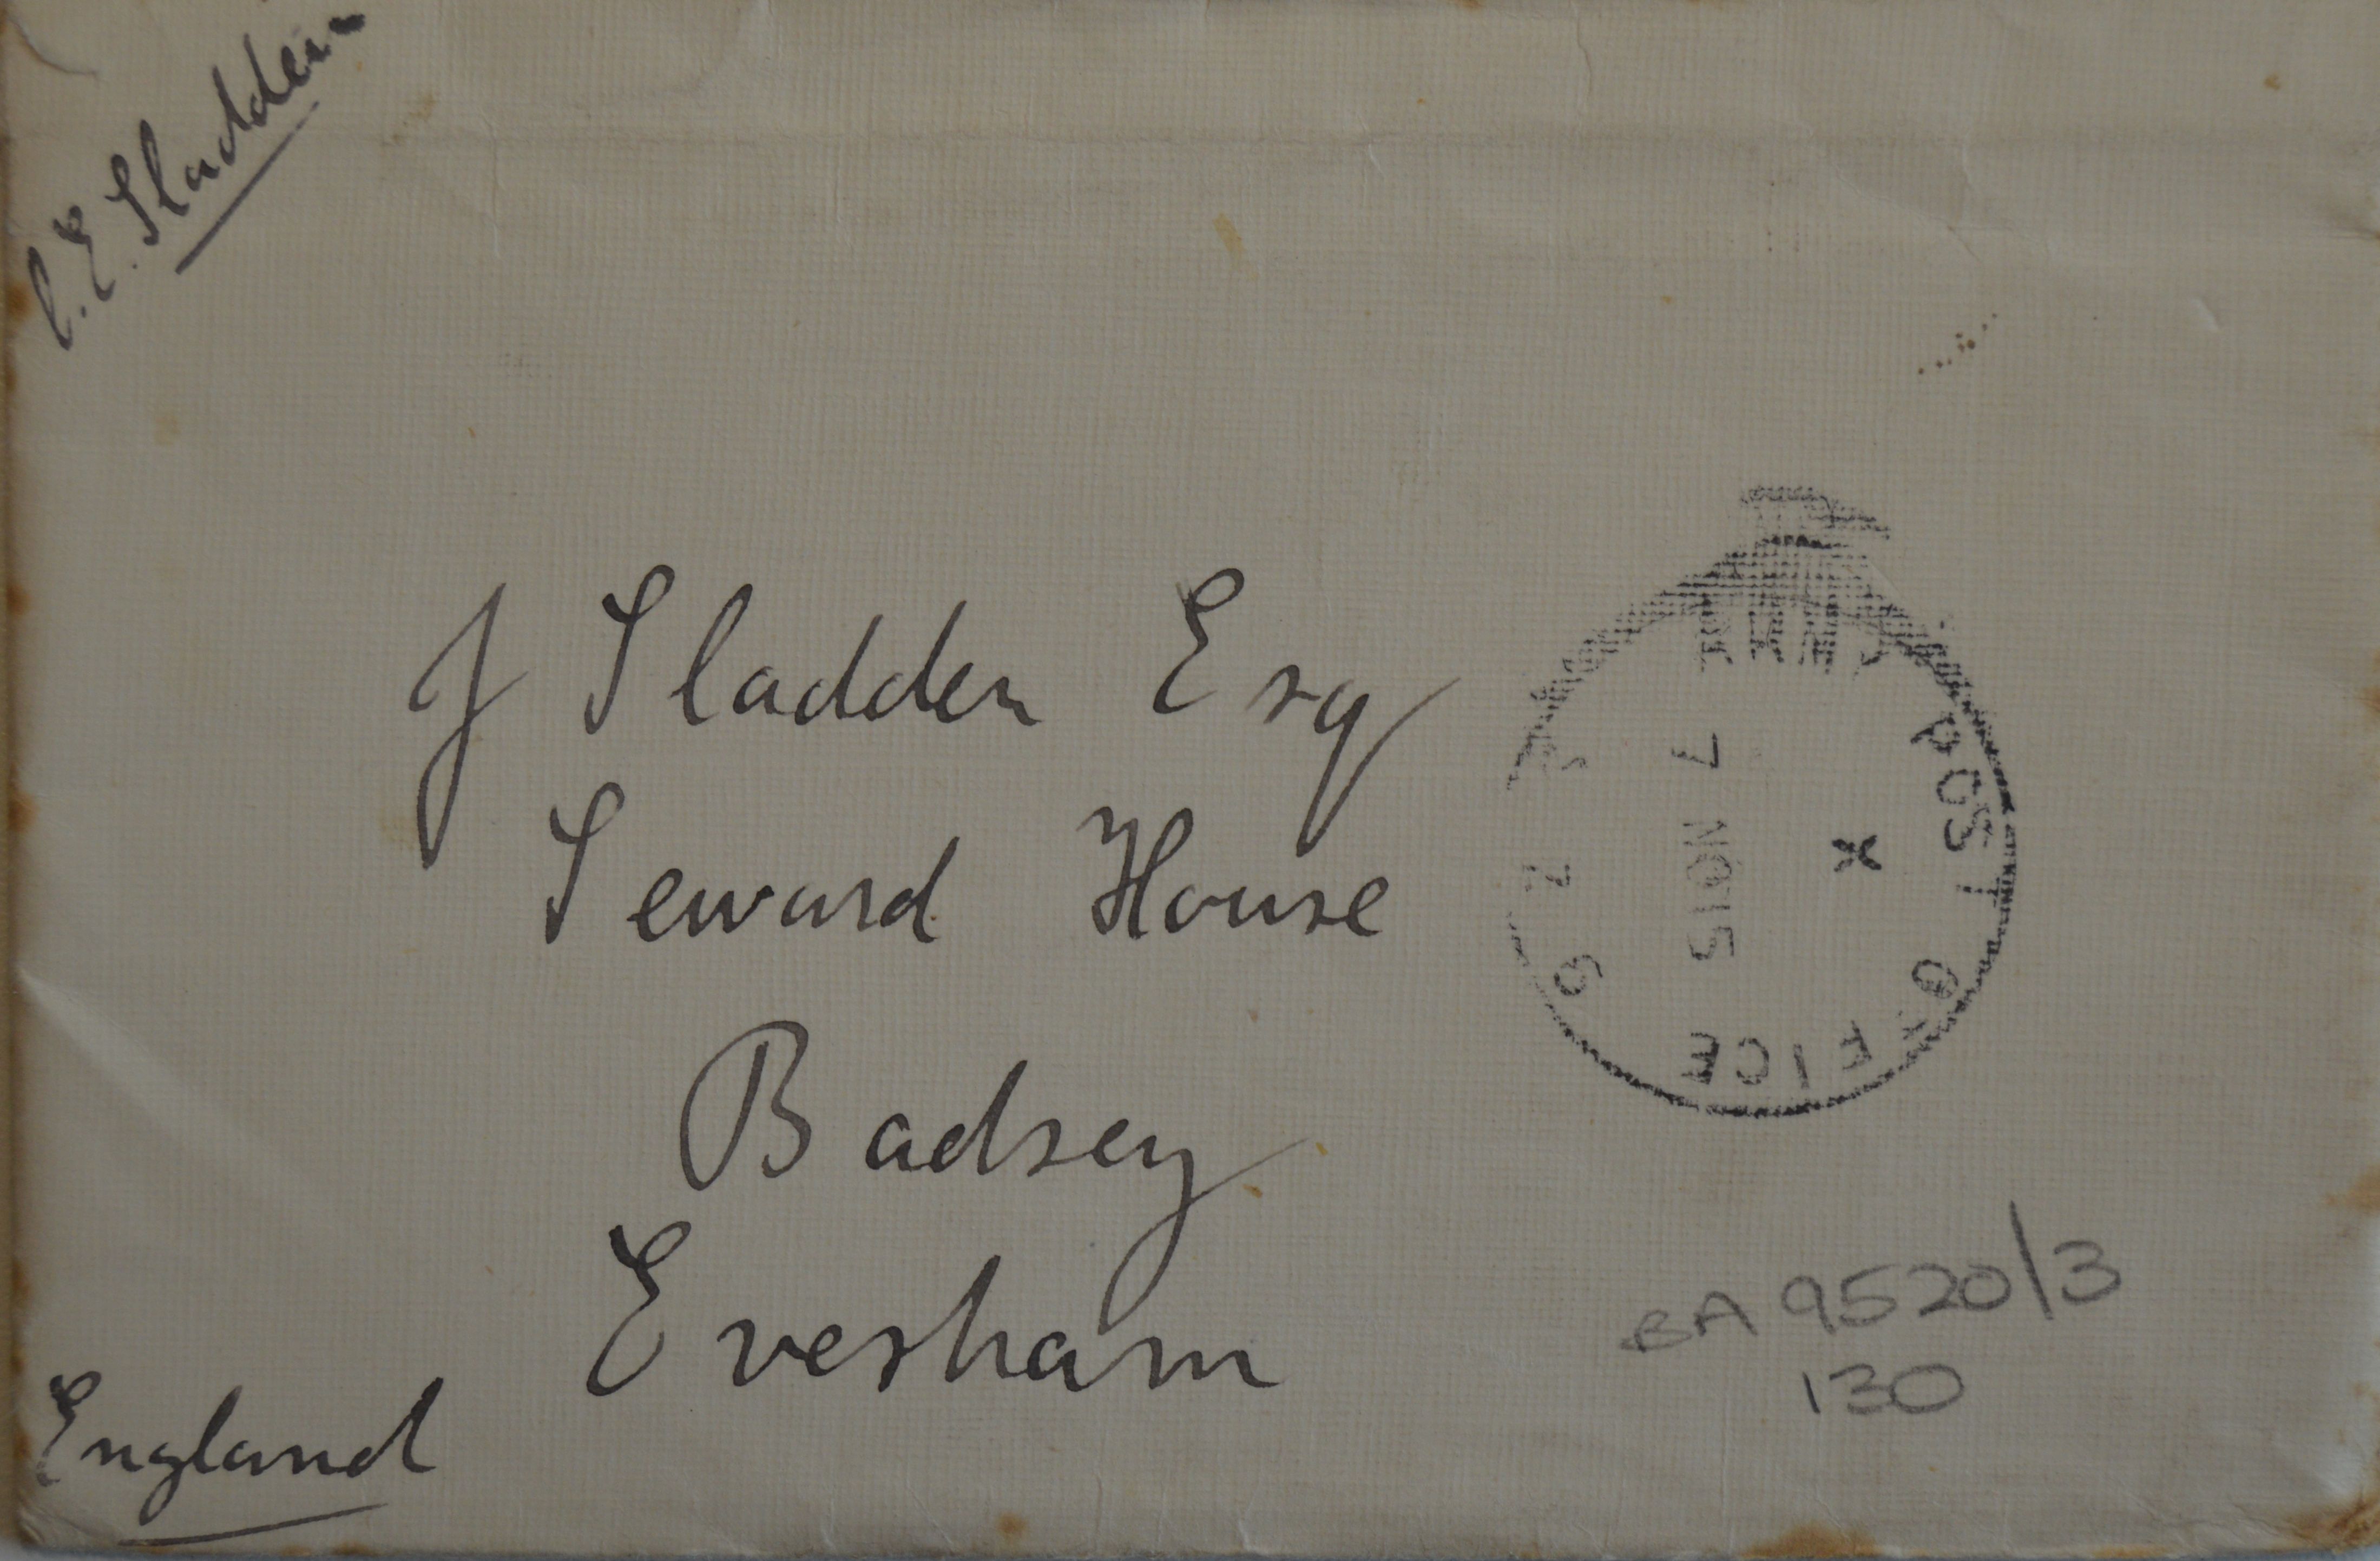 C.E. Sladden
J Sladden Esq
Seward House
Badsey
Evesham
England
ARMY POST OFFICE
X
7 NO 15
BA 9520/3
130